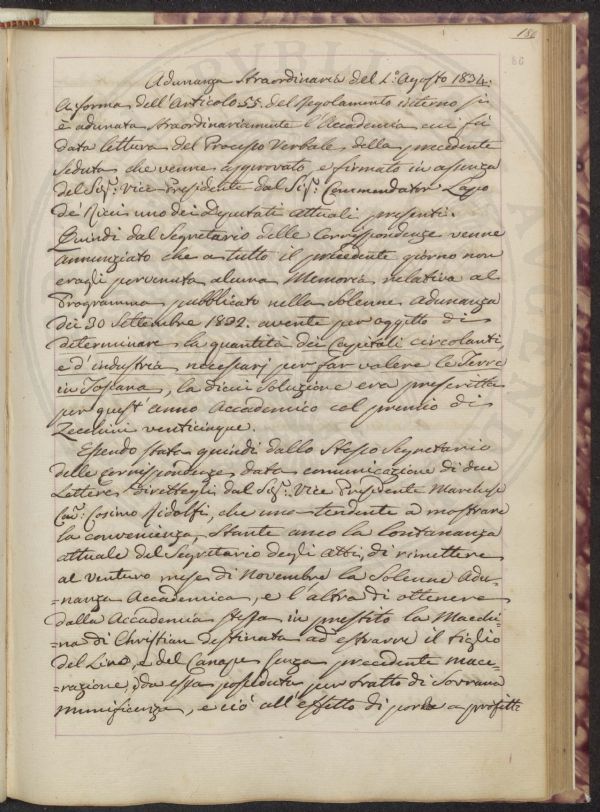 186
86
Adunanza Straordinaria del 1.° Agosto 1834.
A forma dell'Articolo 55. del Regolamento interno si
è adunata straordinariamente l'Accademia cui fu
data lettura del Processo Verbale della precedente
Seduta che venne approvato, e firmato in assenza
del Sig.r Vice-Presidente dal Sig.r Commendator Lapo
de' Ricci uno dei Deputati attuali presenti.
Quindi dal Segretario delle Corrispondenze venne
annunziato che a tutto il precedente giorno non
eragli pervenuta alcuna Memoria relativa al
Programma pubblicato nella solenne Adunanza
dei 30 Settembre 1832. avente per oggetto di
determinare la quantità dei Capitali circolanti,
e d'industria necessarj per far valere le Terre
in Toscana, la di cui soluzione era prescritta
per quest'anno Accademico col premio di
Zecchini venticinque.
Essendo stata quindi dallo stesso Segretario
delle Corrispondenze data comunicazione di due
Lettere direttegli dal Sig.r Vice Presidente Marchese
Cav.r Cosimo Ridolfi, che una tendente a mostrare
la convenienza, stante anco la lontananza
attuale del Segretario degli Atti, di rimettere
al venturo mese di Novembre la Solenne Adu=
=nanza Accademica, e l'altra di ottenere
dalla Accademia stessa in prestito la Macchi=
=na di Christian destinata ad estrarre il tiglio
del Lino, e del Canape senza precedente mace=
=razione, da essa posseduta per tratto di Sovrana
munificenza, e ciò all'effetto di porla a profitto